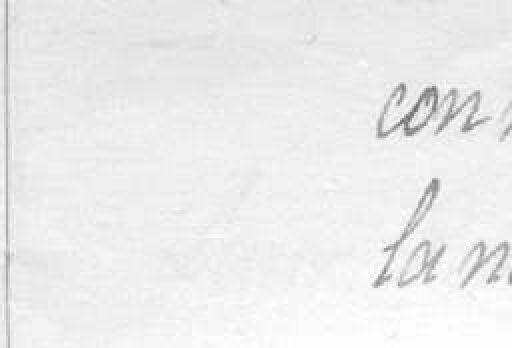 con
lan